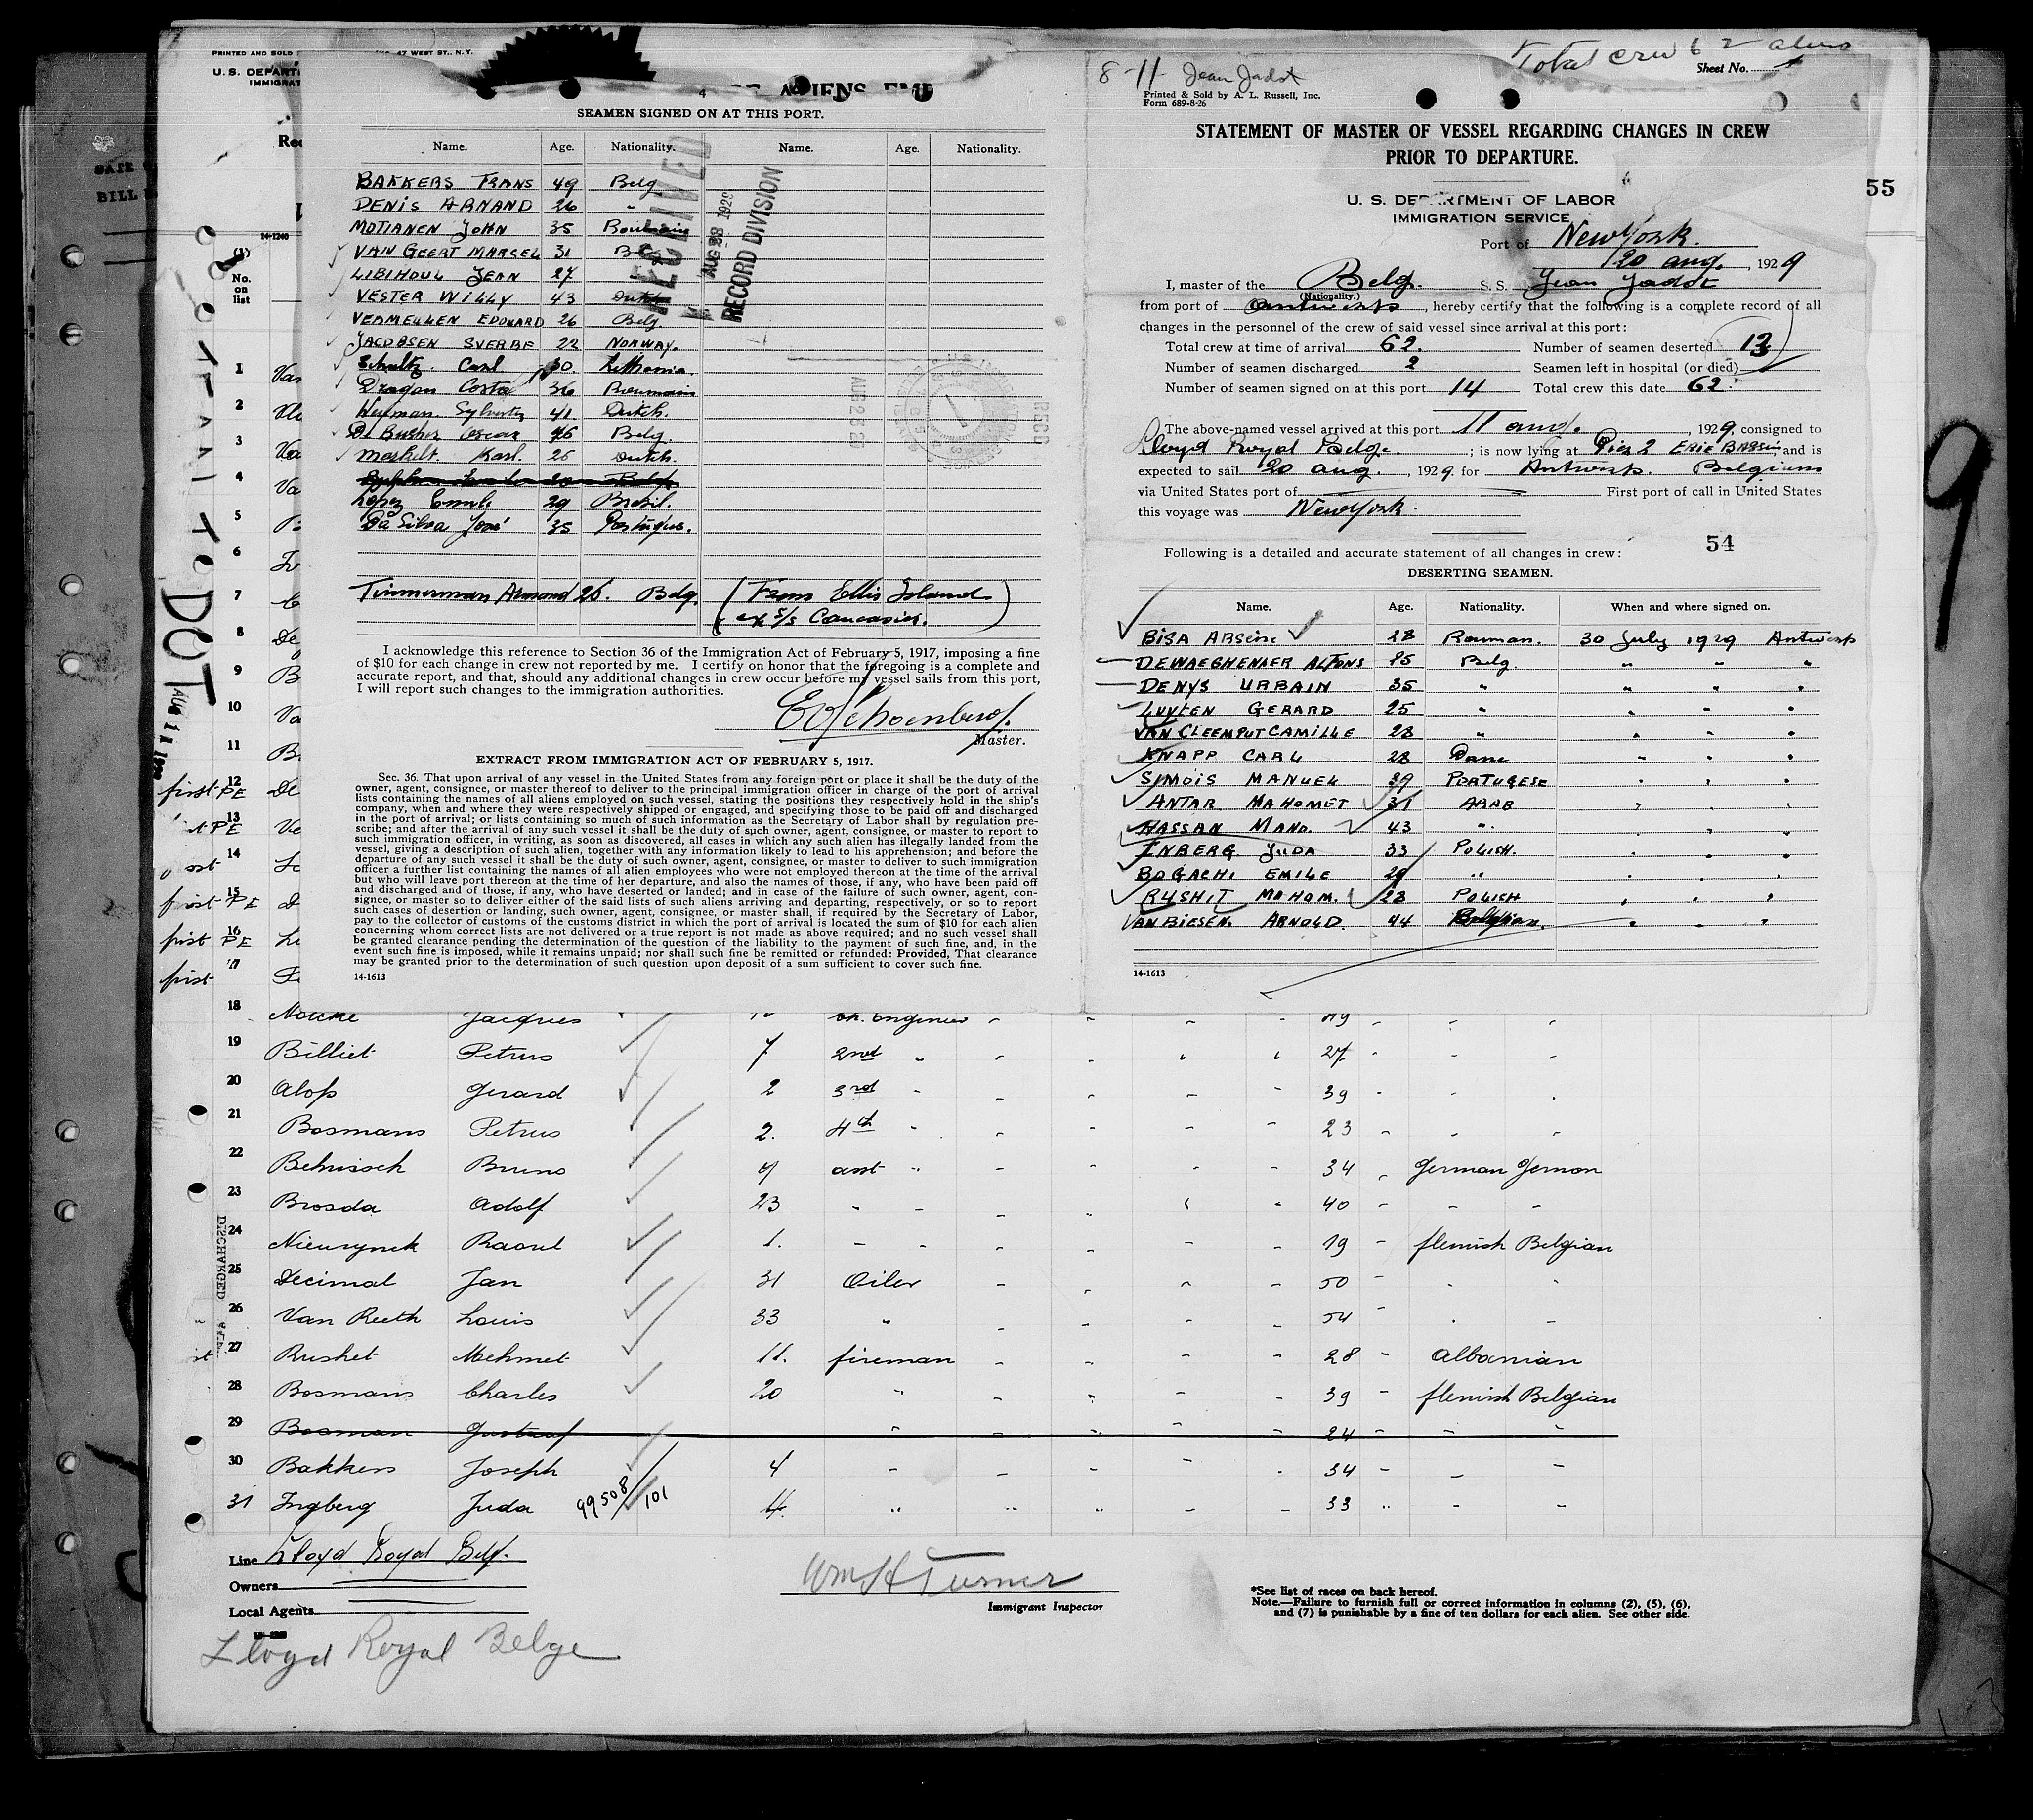 PRINTED AND SOLD
47 WEST ST., N.Y.
IMMIGRAT
14-1240
(1)
No.
on
list
4
SEAMEN SIGNED ON AT THIS PORT.
Name. Age. Nationality. Name. Age. Nationality.
BAKKERS FRANS 49 Belg
DENIS ARNAND 26 "
MOTIANEN JOHN 35
VAN GEERT MARCEL 31 Belg
LIBIHOUL JEAN 27
VESTER WILLY 43 Dutch
VERMEULEN EDOUARD 26 Belg.
JACOBSEN SVERRE 22 NORWAY.
Schultz Carl 30. Lithania.
Dragon Costa 36 Roumain
Heyman. Sylvester 41. Dutch.
De Busher Oscar 46 Belg.
Meskelt. Karl. 25 Dutch.
Lopez Emile 29 Bresil.
Da Silva José 35 Portugus.
Timmerman Armand 26. Belg. (From Ellis Island
ex s/s Caucasier.)
RECEIVED
AUG 28 1929
RECORD DIVISION
I acknowledge this reference to Section 36 of the Immigration Act of February 5, 1917, imposing a fine
of $10 for each change in crew not reported by me. I certify on honor that the foregoing is a complete and
accurate report, and that, should any additional changes in crew occur before my vessel sails from this port,
I will report such changes to the immigration authorities.
Master.
EXTRACT FROM IMMIGRATION ACT OF FEBRUARY 5, 1917.
Sec. 36. That upon arrival of any vessel in the United States from any foreign port or place it shall be the duty of the
owner, agent, consignee, or master thereof to deliver to the principal immigration officer in charge of the port of arrival
lists containing the names of all aliens employed on such vessel, stating the positions they respectively hold in the ship's
company, when and where they were respectively shipped or engaged, and specifying those to be paid off and discharged
in the port of arrival; or lists containing so much of such information as the Secretary of Labor shall by regulation pre-
scribe; and after the arrival of any such vessel it shall be the duty of such owner, agent, consignee, or master to report to
such immigration officer, in writing, as soon as discovered, all cases in which any such alien has illegally landed from the
vessel, giving a description of such alien, together with any information likely to lead to his apprehension; and before the
departure of any such vessel it shall be the duty of such owner, agent, consignee, or master to deliver to such immigration
officer a further list containing the names of all alien employees who were not employed thereon at the time of the arrival
but who will leave port thereon at the time of her departure, and also the names of those, if any, who have been paid off
and discharged and of those, if any, who have deserted or landed; and in case of the failure of such owner, agent, con-
signee, or master so to deliver either of the said lists of such aliens arriving and departing, respectively, or so to report
such cases of desertion or landing, such owner, agent, consignee, or master shall, if required by the Secretary of Labor,
pay to the collector of customs of the customs district in which the port of arrival is located the sum of $10 for each alien
concerning whom correct lists are not delivered or a true report is not made as above required; and no such vessel shall
be granted clearance pending the determination of the question of the liability to the payment of such fine, and, in the
event such fine is imposed, while it remains unpaid; nor shall such fine be remitted or refunded: Provided, That clearance
may be granted prior to the determination of such question upon deposit of a sum sufficient to cover such fine.
14-1613
Total crew 62 aliens
Sheet No.
8-11- Jean Jadot
Printed & Sold by A. L. Russell, Inc.
Form 689-8-26
STATEMENT OF MASTER OF VESSEL REGARDING CHANGES IN CREW
PRIOR TO DEPARTURE.
55
U. S. DEPARTMENT OF LABOR
IMMIGRATION SERVICE
Port of New York.
20 aug., 1929
I, master of the Belg. S. S. Jean Jadot
(Nationality.)
from port of Antwerp, hereby certify that the following is a complete record of all
changes in the personnel of the crew of said vessel since arrival at this port:
Total crew at time of arrival 62. Number of seamen deserted 13
Number of seamen discharged 2 Seamen left in hospital (or died)
Number of seamen signed on at this port 14 Total crew this date 62.
The above-named vessel arrived at this port 11 aug., 1929. consigned to
Lloyd Royal Belge.; is now lying at Pier 2 ERIE BASSIN and is
expected to sail 20 aug., 1929. for Antwerp. Belgium
via United States port of First port of call in United States
this voyage was New York.
54
Following is a detailed and accurate statement of all changes in crew:
DESERTING SEAMEN.
Name. Age. Nationality. When and where signed on.
BISA ARSENE 28 Rouman. 30 July 1929 Antwerp
DEWAEGHENAER ALFONS 25 Belg. " " "
DENYS URBAIN 35 " " " "
LUYTEN GERARD 25 " " " "
VAN CLEEMPUT CAMILLE 28 " " " "
KNAPP CARL 28 Dane " " "
SIMOIS MANUEL 39 PORTUGESE " " "
ANTAR MAHOMET 31 ARAB " " "
HASSAN MAHD. 43 " " " "
INBERG JUDA 33 POLISH. " " "
BOGACHI EMILE 29 " " " "
RUSHIT MAHOM. 28 POLISH " " "
VAN BIESEN. ARNOLD. 44 Belgian. " "
14-1613
9
1
2
3
4
5
6
7
8
9
10
11
first PE 12
PE 13
14
first PE 15
first PE 16
first 17
18 Jacques ch. Engineer 49
19 Billiet Petrus 7 2nd " 27
20 Alops Gerard 2 3rd " 39
21 Bosmans Petrus 2. 4th " 23
22 Behnisch Bruno 9 asst " 34 German German
23 Brosda Adolf 23 " " 40 " "
24 Nieurynck Raoul 1. " " 19 flemish Belgian
25 Decimal Jan 31 Oiler 50 " "
26 Van Reeth Louis 33 " 54 " "
27 Rushet Mehmet 11. fireman 28 Albanian
28 Bosmans Charles 20 " 39 flemish Belgian
29 Bosman Gustaaf " 24 " "
30 Bakkers Joseph 4 " 34 " "
31 Ingberg Juda 99508/101 4. " 33 " "
DISCHARGED
Line Lloyd Royal Belg.
Owners
Local Agents
Lloyd Royal Belge
Wm H Turner
Immigrant Inspector
*See list of races on back hereof.
Note.—Failure to furnish full or correct information in columns (2), (5), (6),
and (7) is punishable by a fine of ten dollars for each alien. See other side.